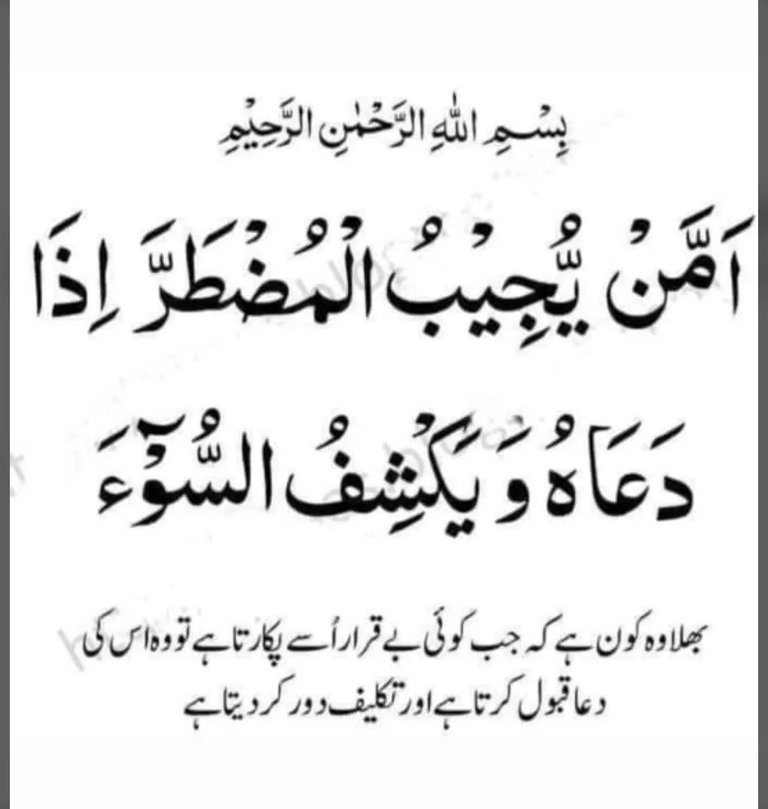 بِسْمِ اللهِ الرَّحْمٰنِ الرَّحِيْمِ
اَمَّنْ يُّجِيْبُ الْمُضْطَرَّ اِذَا
دَعَاهُ وَ يَكْشِفُ السُّوْٓءَ
بھلا وہ کون ہے کہ جب کوئی بے قرار اُسے پکارتا ہے تو وہ اس کی
دعا قبول کرتا ہے اور تکلیف دور کر دیتا ہے